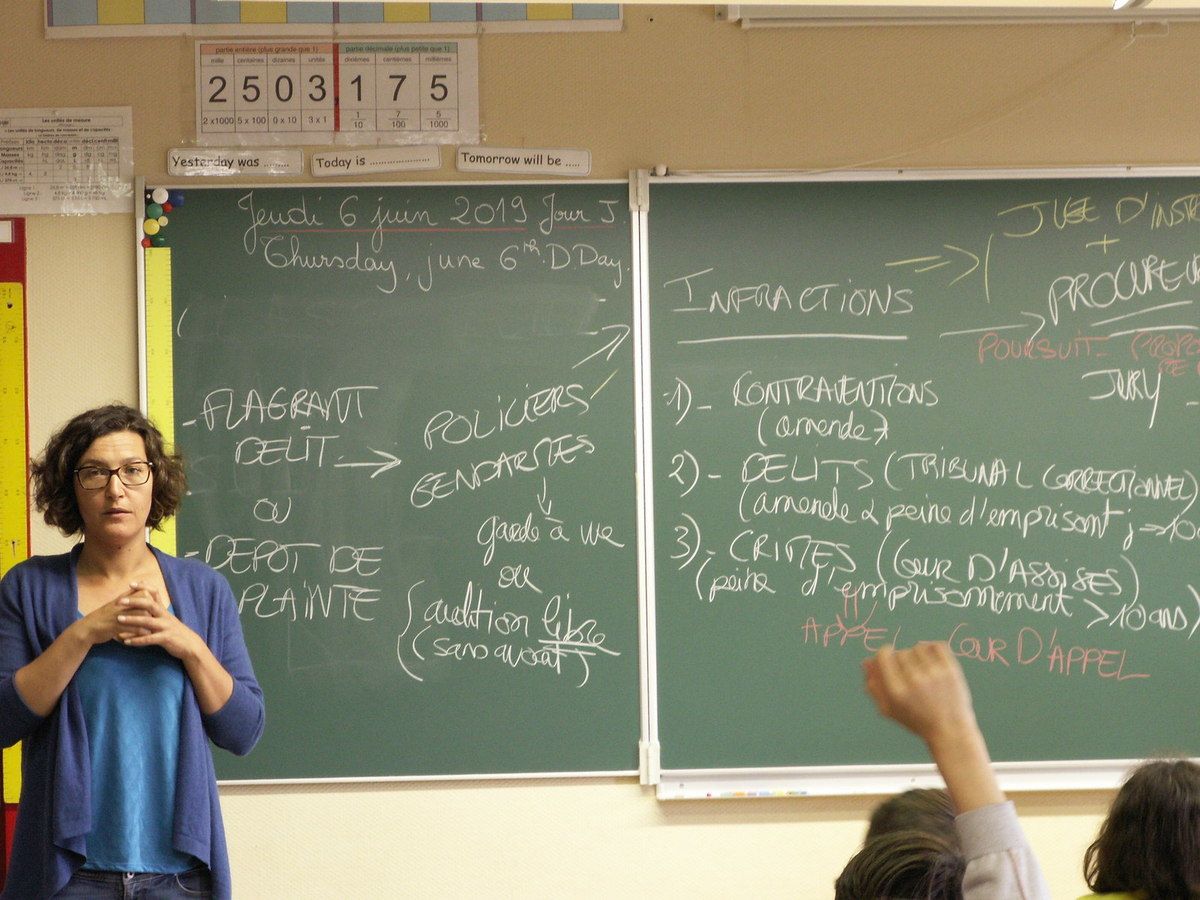 partie entière (plus grande que 1) partie décimale (plus petite que 1)
mille centaines dizaines unités dixièmes centièmes millièmes
2 5 0 3 1 7 5
2 x1000 5 x 100 0 x 10 3 x 1 1/10 7/100 5/1000
Les unités de mesure
Yesterday was ......... Today is .................. Tomorrow will be .....
Jeudi 6 juin 2019 Jour J
Thursday, june 6th. D Day.
- FLAGRANT
DELIT →
OU
- DEPOT DE
PLAINTE
POLICIERS
GENDARMES
↓
garde à vue
ou
audition libre
(sans avocat)
INFRACTIONS
JUGE D'INST
+
PROCUREUR
POURSUIT
JURY
1) - CONTRAVENTIONS
(amende)
2) - DELITS (TRIBUNAL CORRECTIONNEL)
(amende & peine d'emprisont j → 10
3) - CRIMES (COUR D'ASSISES)
(peine d'emprisonnement > 10 ans)
APPEL COUR D'APPEL